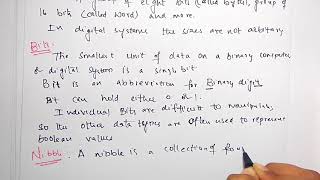 of eight bits (called byte), group of
16 bits (called word) and more.
In digital systems the sizes are not arbitary
Bits:
The smallest unit of data on a binary computer
& digital system is a single bit.
Bit is an abbreviation for Binary digit
Bit can hold either 0 or 1.
Individual Bits are difficult to manipulate,
So the other data types are often used to represent
boolean values
Nibble: A nibble is a collection of fou